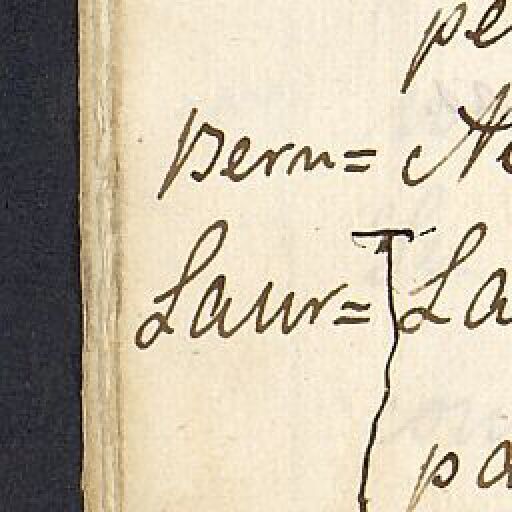 pe
pern= Ne
Laur= La
pa